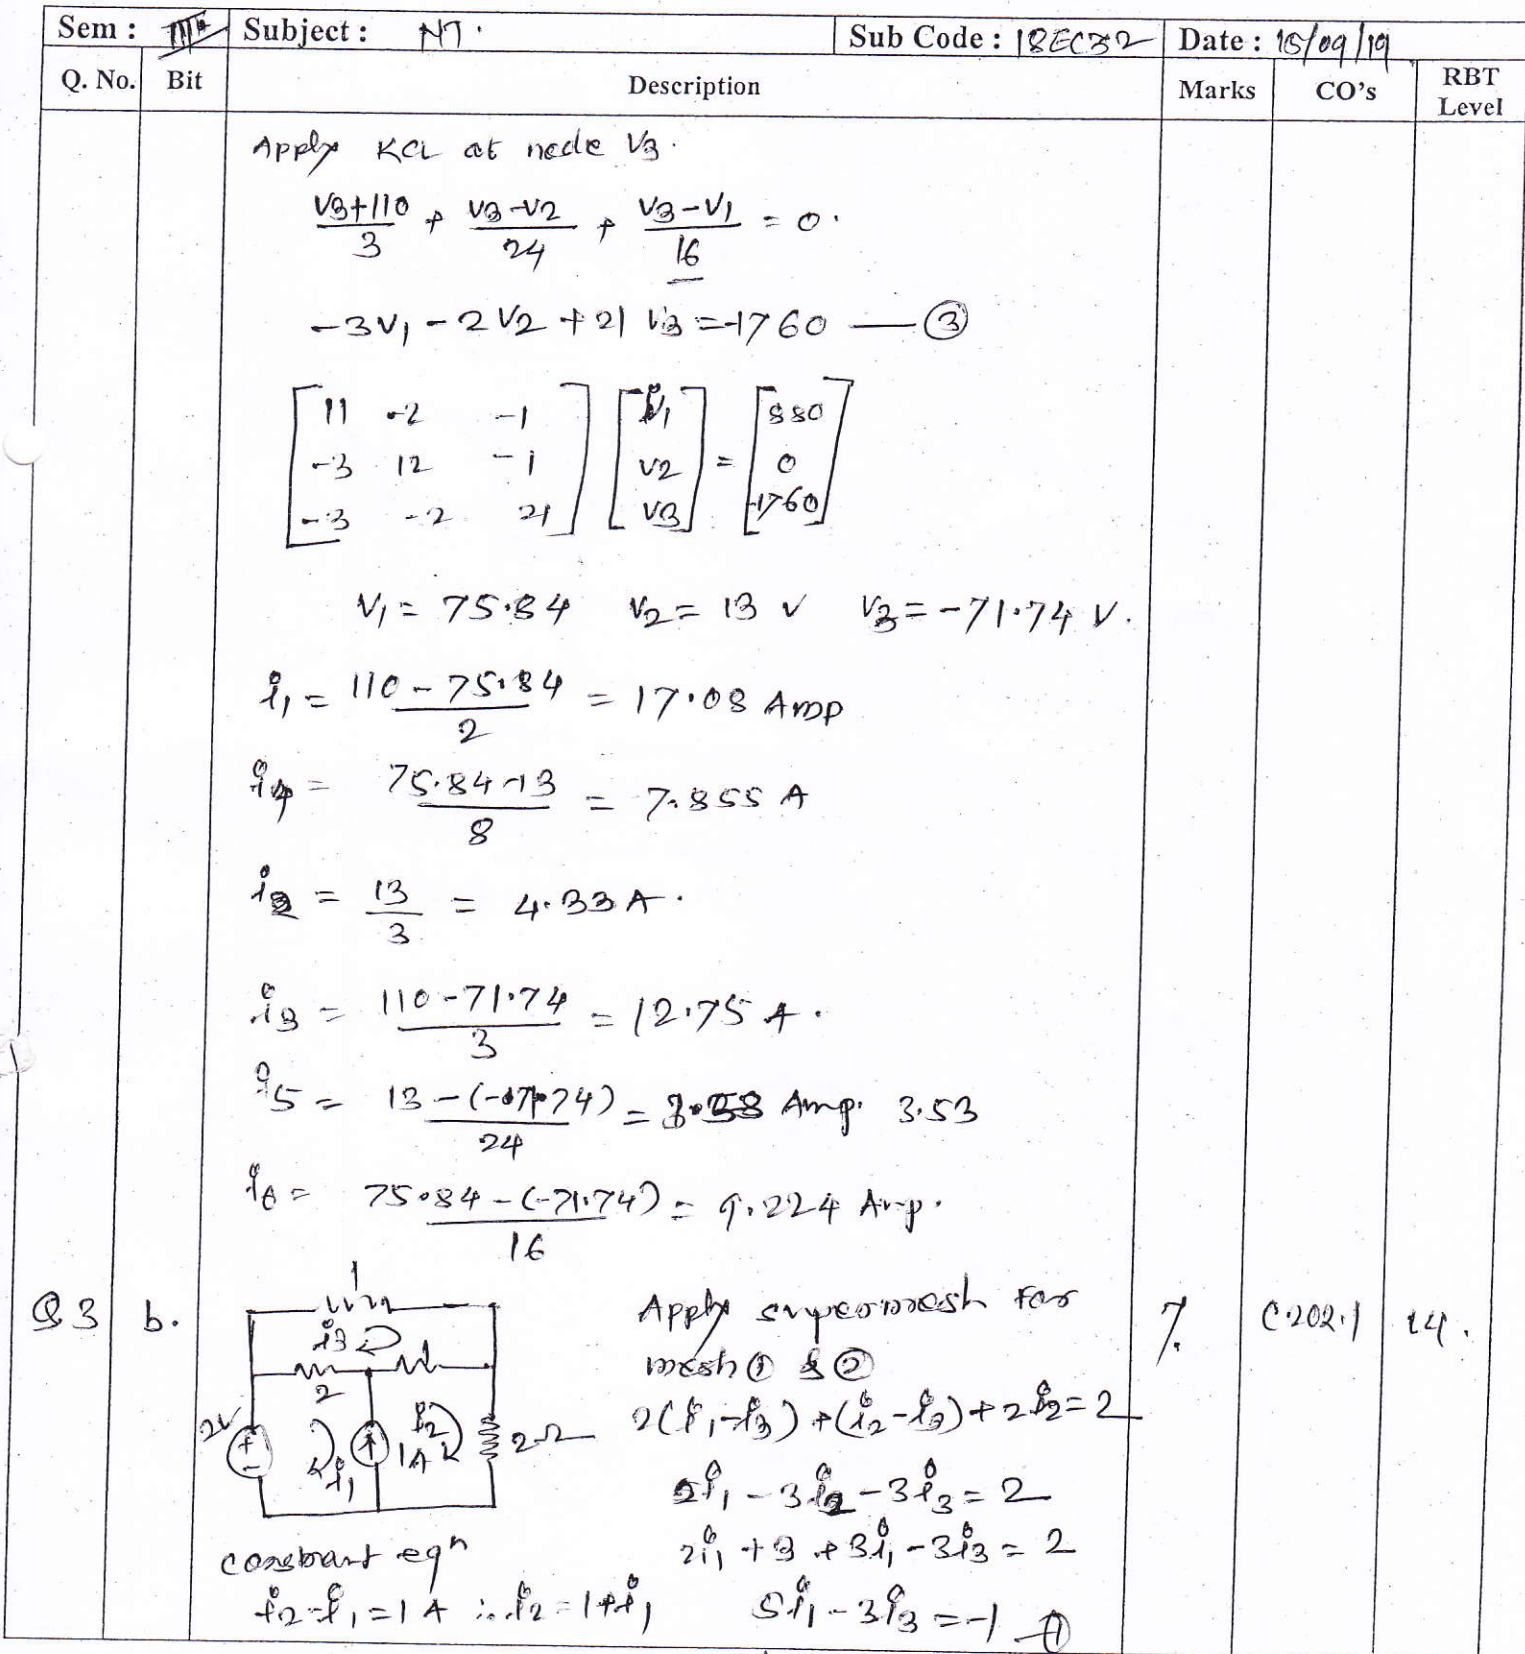 Sem : III Subject : NT. Sub Code : 18EC32 Date : 15/09/19
Q. No. Bit Description Marks CO's RBT Level
Apply KCL at node V3.
(V3+110)/3 + (V3-V2)/24 + (V3-V1)/16 = 0.
-3V1 - 2V2 + 21 V3 = -1760 — ③
[11 -2 -1] [V1] [880]
[-3 12 -1] [V2] = [0]
[-3 -2 21] [V3] [-1760]
V1 = 75.84 V2 = 13 V V3 = -71.74 V.
i1 = (110 - 75.84)/2 = 17.08 Amp
i4 = (75.84-13)/8 = 7.855 A
i2 = 13/3 = 4.33A.
i3 = (110-71.74)/3 = 12.75 A.
i5 = (13-(-71.74))/24 = Amp. 3.53
i6 = (75.84-(-71.74))/16 = 9.224 Amp.
Q3 b. 7. C202.1 L4.
1
i3
2 1
2V i1 1A i2 2Ω
Apply supermesh for
mesh ① & ②
2(i1-i3)+(i2-i3)+2i2=2
2i1 - 3i2 - 3i3 = 2
2i1 + 3 + 3i1 - 3i3 = 2
5i1 - 3i3 = -1 ①
constraint eqn
i2-i1=1A ∴ i2=1+i1